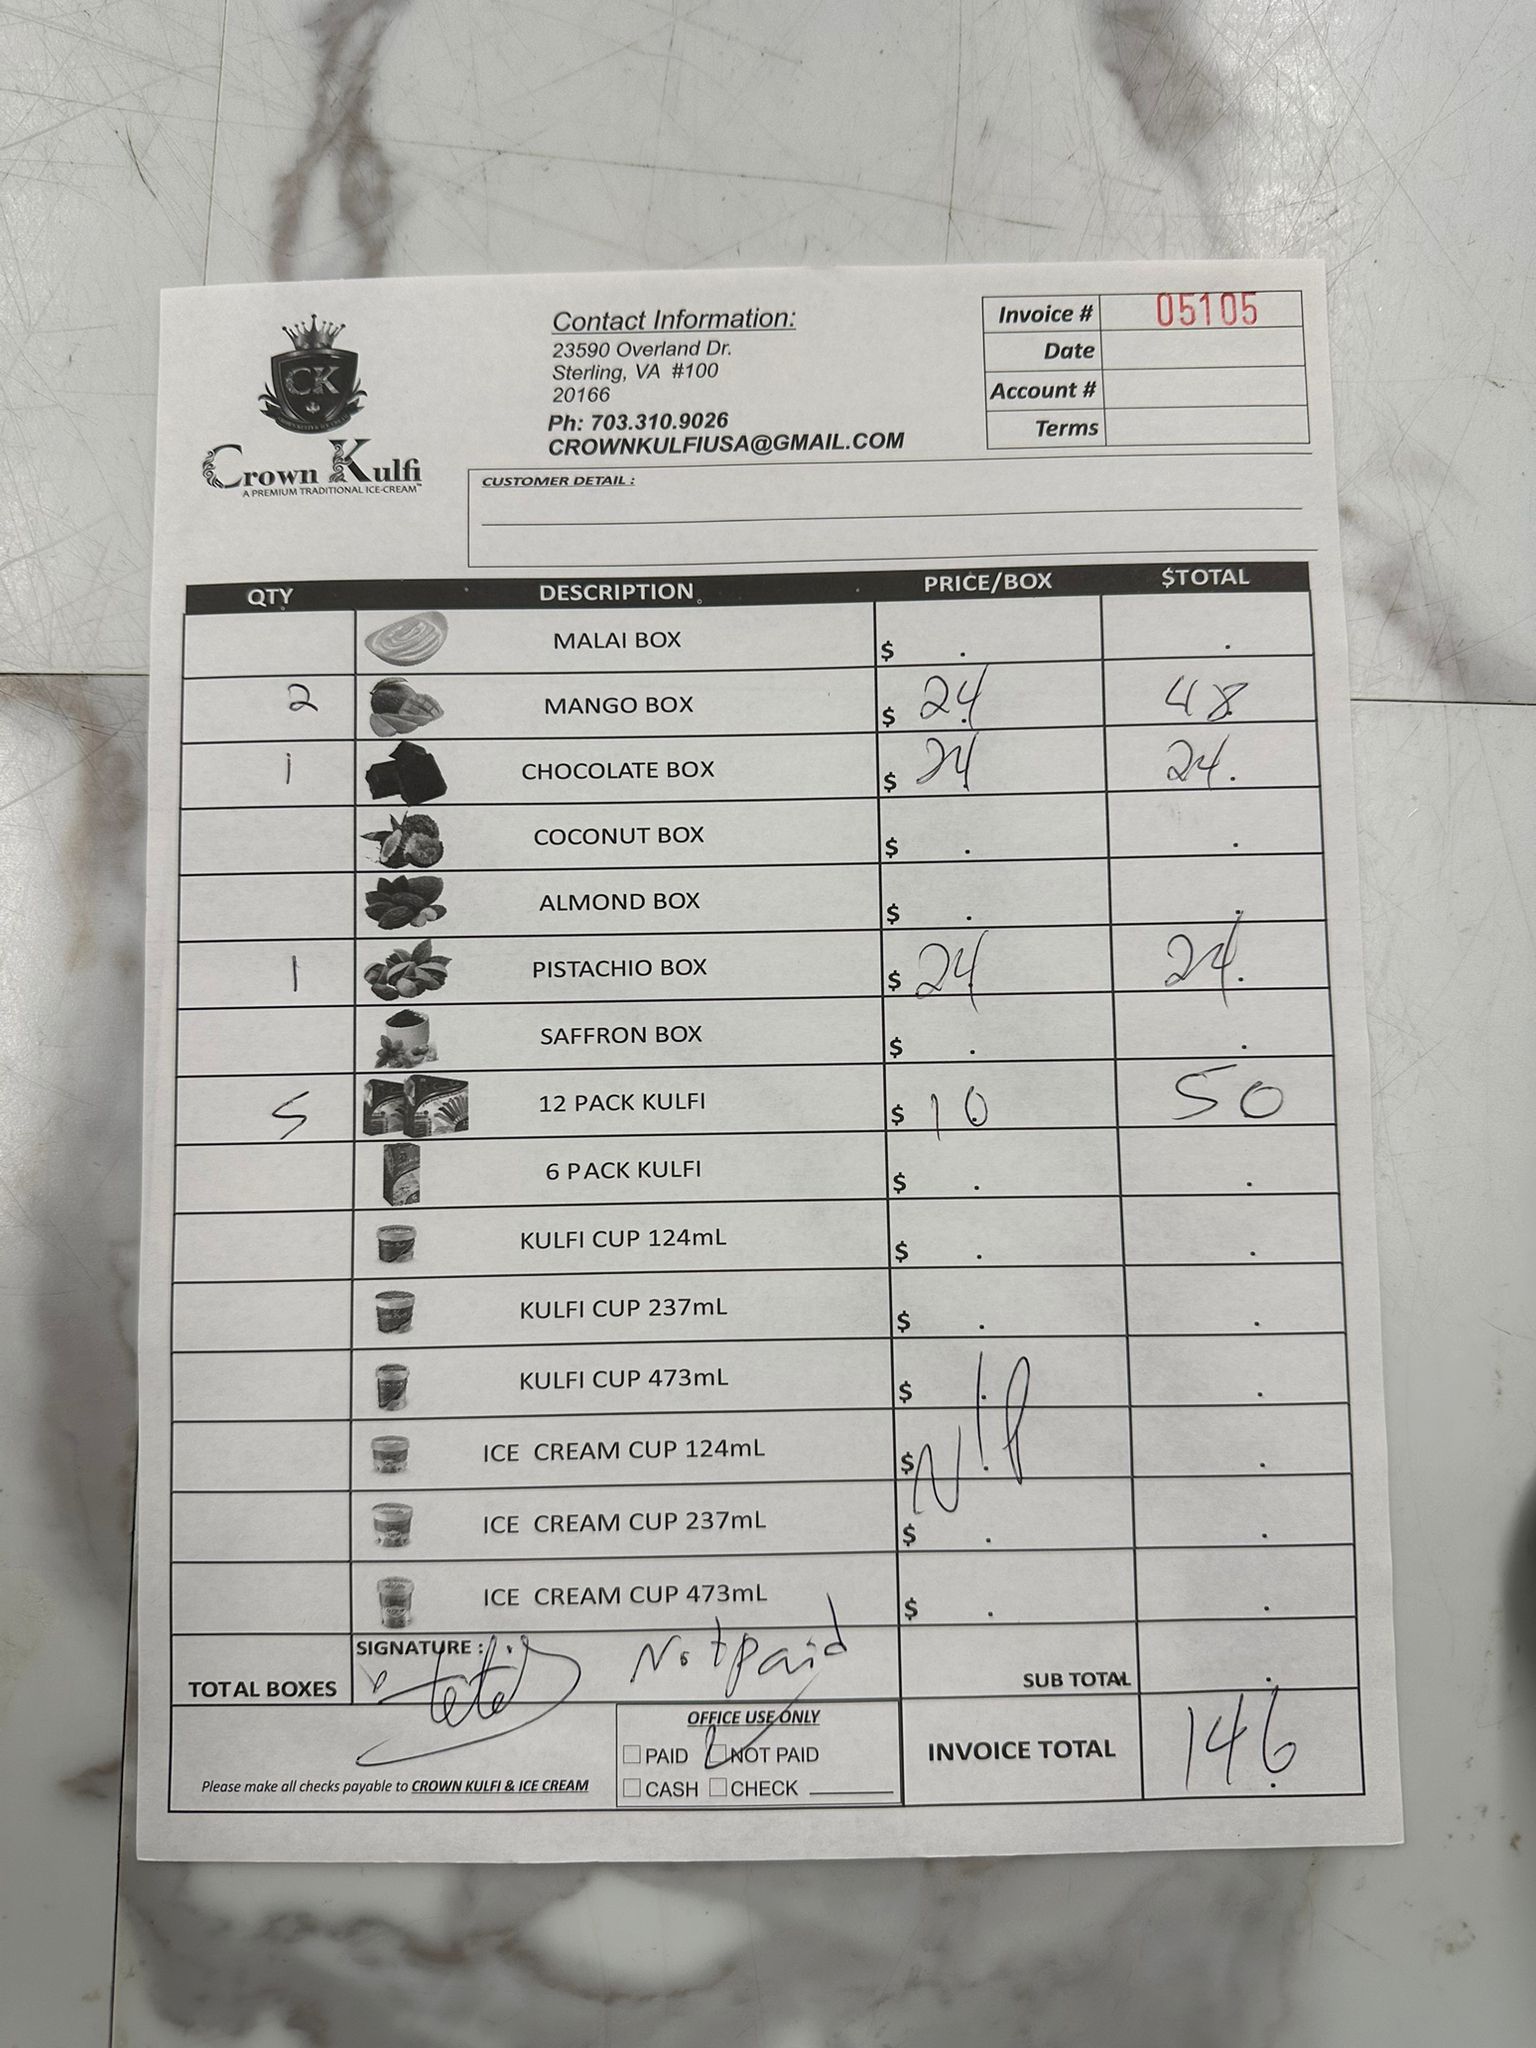 CK
CROWN KULFI & ICE CREAM
Crown Kulfi
A PREMIUM TRADITIONAL ICE-CREAM™
Contact Information:
23590 Overland Dr.
Sterling, VA #100
20166
Ph: 703.310.9026
CROWNKULFIUSA@GMAIL.COM
Invoice # 05105
Date
Account #
Terms
CUSTOMER DETAIL :
QTY DESCRIPTION PRICE/BOX $TOTAL
MALAI BOX $ .
2 MANGO BOX $ 24 48
1 CHOCOLATE BOX $ 24 24.
COCONUT BOX $ . .
ALMOND BOX $ . .
1 PISTACHIO BOX $ 24 24.
SAFFRON BOX $ . .
5 12 PACK KULFI $ 10 50
6 PACK KULFI $ . .
KULFI CUP 124mL $ . .
KULFI CUP 237mL $ . .
KULFI CUP 473mL $ .
ICE CREAM CUP 124mL $ .
ICE CREAM CUP 237mL $ . .
ICE CREAM CUP 473mL $ . .
TOTAL BOXES SIGNATURE : Not paid SUB TOTAL .
OFFICE USE ONLY
PAID NOT PAID
CASH CHECK
INVOICE TOTAL 146
Please make all checks payable to CROWN KULFI & ICE CREAM